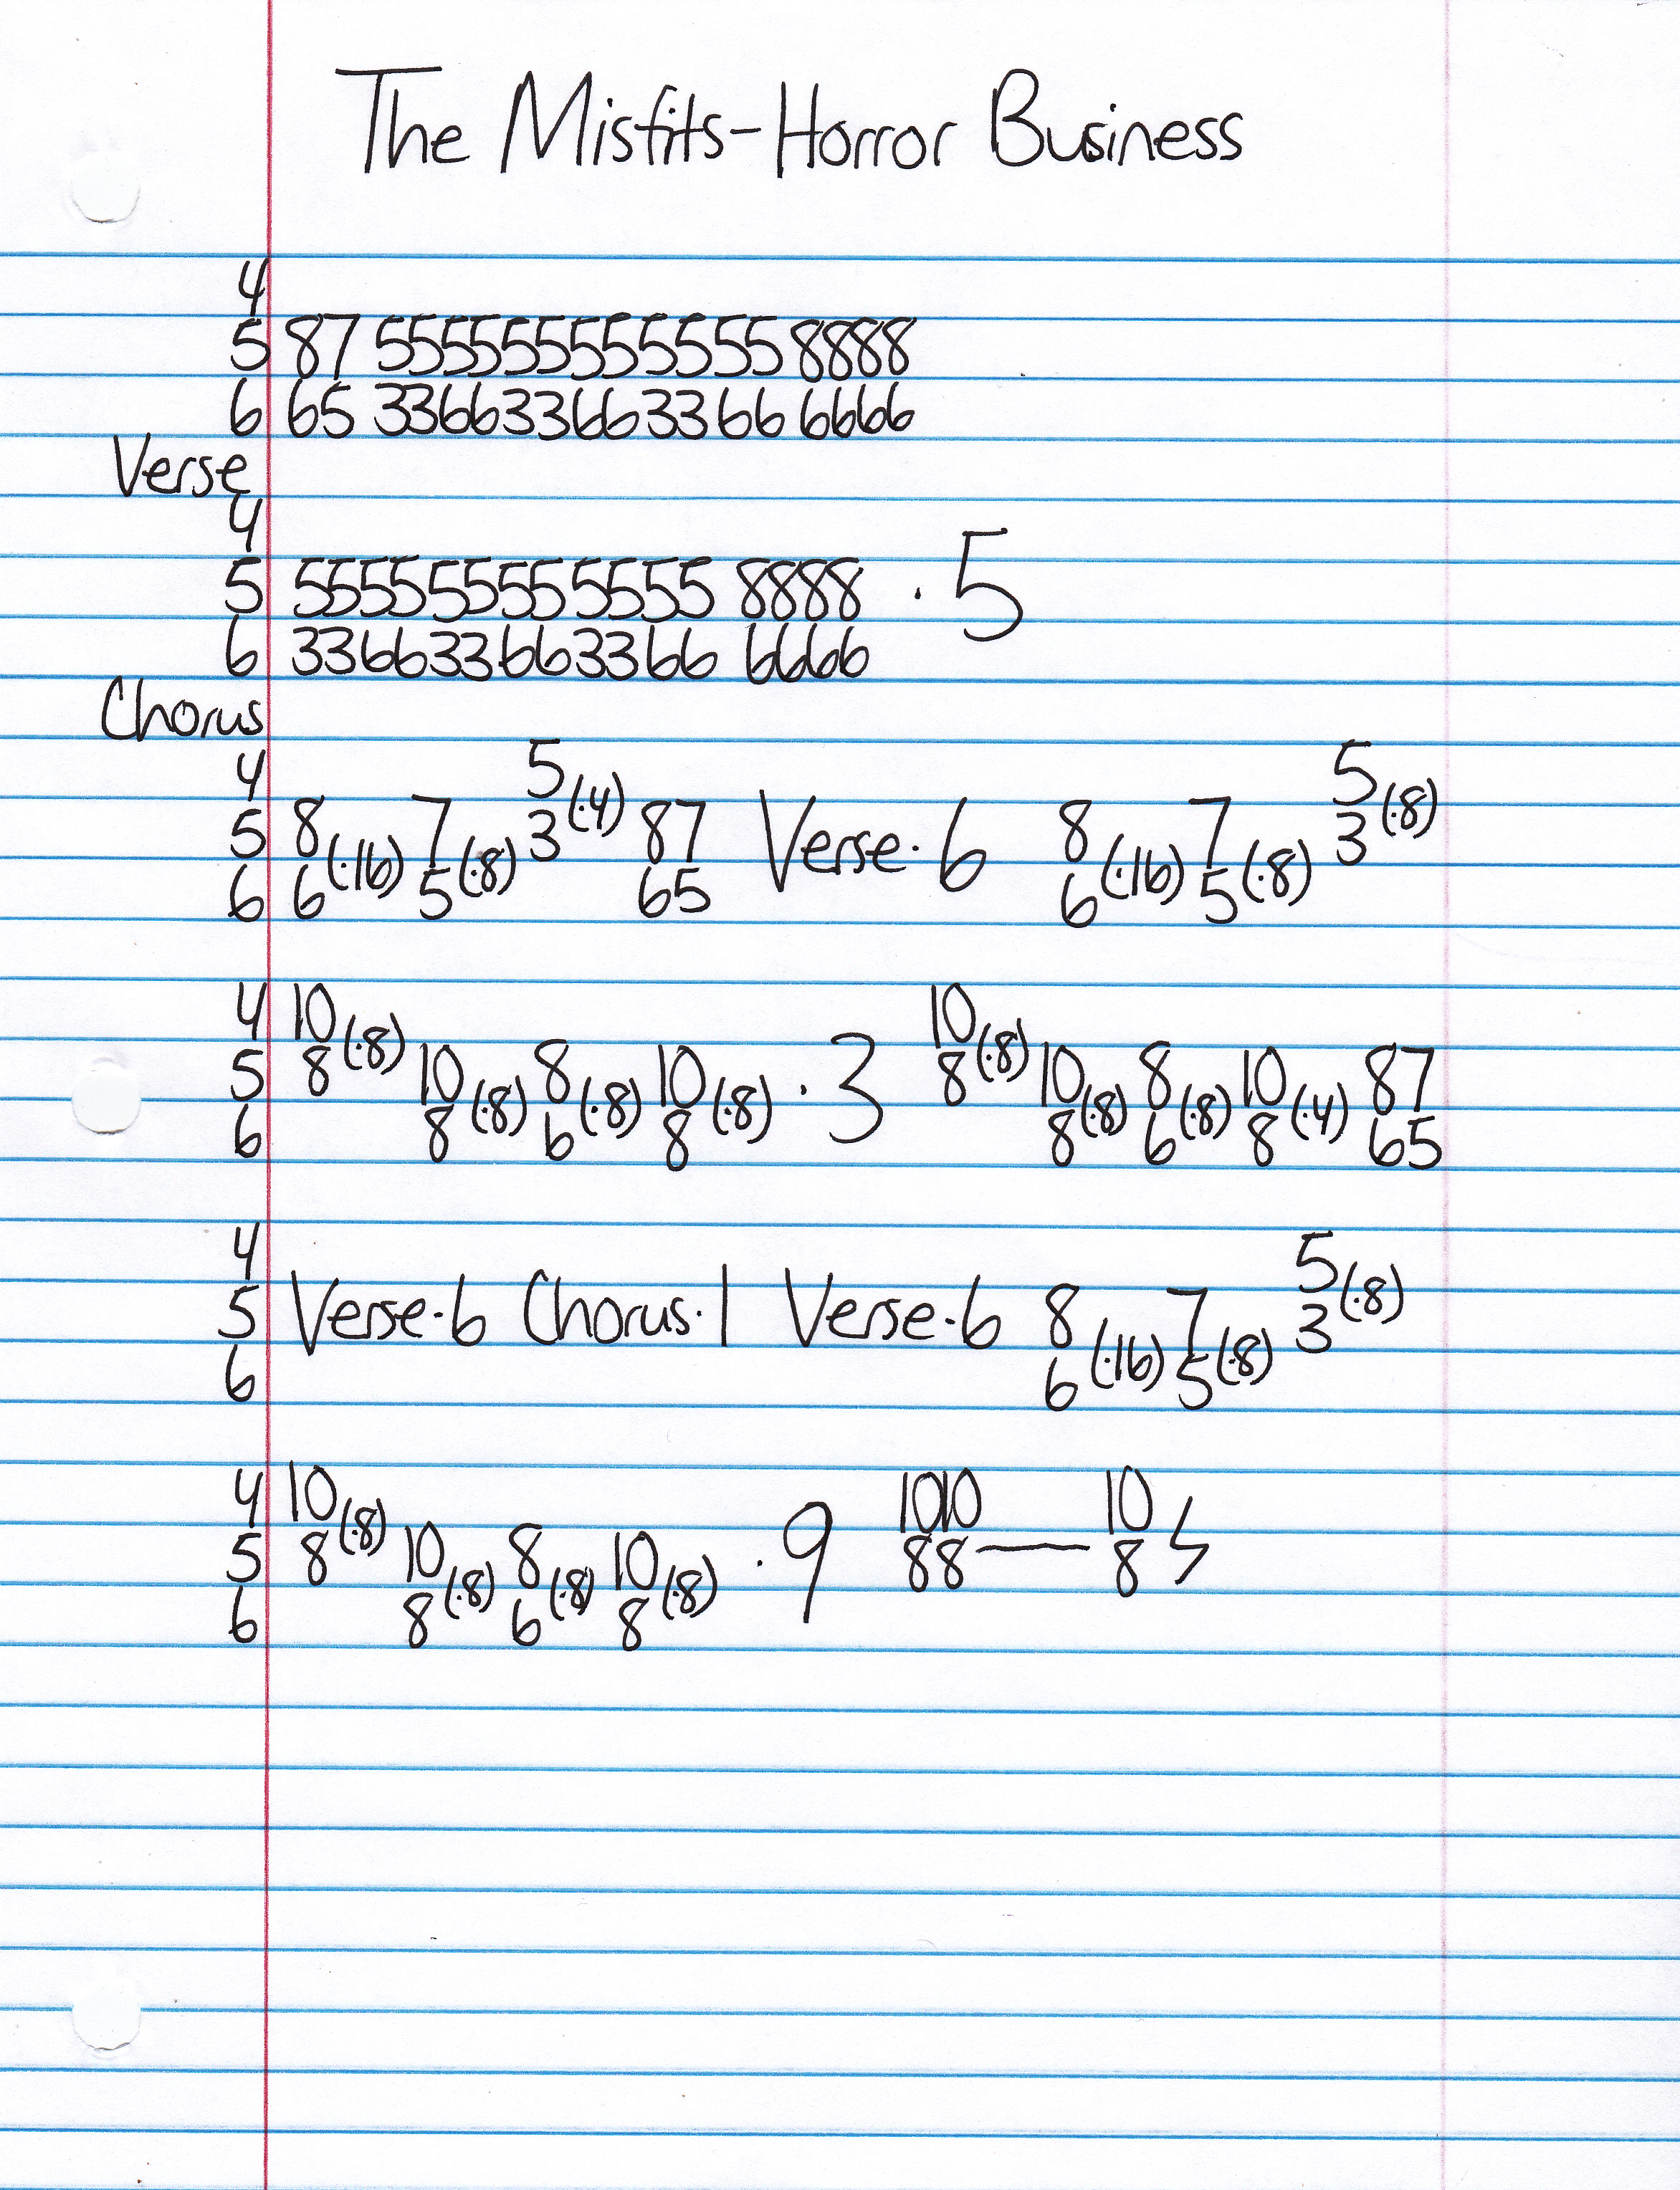 The Misfits-Horror Business
4
5 87 555555555555 8888
6 65 336633663366 6666
Verse
4
5 555555555555 8888 ·5
6 336633663366 6666
Chorus
4 5(·4) 5(·8)
5 8 7 3 87 Verse·6 8 7 3
6 6(·16) 5(·8) 65 6(·16) 5(·8)
4 10(·8) 10(·8)
5 8 10 8 10 ·3 8 10 8 10 87
6 8(·8) 6(·8) 8(·8) 8(·8) 6(·8) 8(·4) 65
4 5(·8)
5 Verse·6 Chorus·1 Verse·6 8 7 3
6 6(·16) 5(·8)
4 10(·8) 1010 10
5 8 10 8 10 ·9 88—8
6 8(·8) 6(·8) 8(·8)